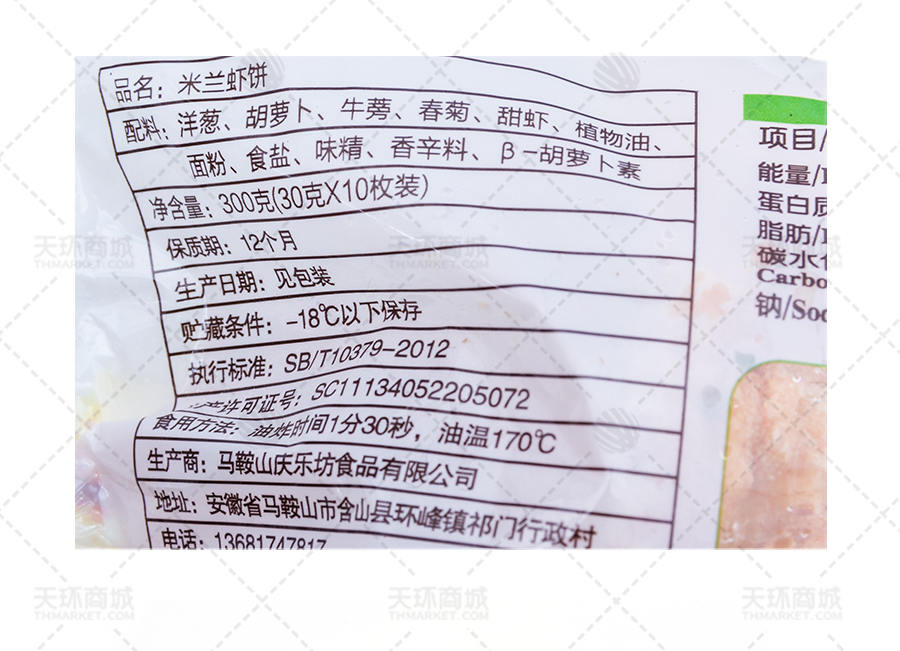 品名：米兰虾饼
配料：洋葱、胡萝卜、牛蒡、春菊、甜虾、植物油、
面粉、食盐、味精、香辛料、β-胡萝卜素
净含量：300克(30克X10枚装)
保质期：12个月
生产日期：见包装
贮藏条件：-18℃以下保存
执行标准：SB/T10379-2012
许可证号：SC11134052205072
食用方法：油炸时间1分30秒，油温170℃
生产商：马鞍山庆乐坊食品有限公司
地址：安徽省马鞍山市含山县环峰镇祁门行政村
电话：13681747817
项目/
能量/
蛋白质
脂肪/
碳水
Carbo
钠/Soo
天环商城
THMARKET.COM
天环商城
THMARKET.COM
天环商城
THMARKET.COM
天环商城
THMARKET.COM
天环商城
THMARKET.COM
天环商城
THMARKET.COM